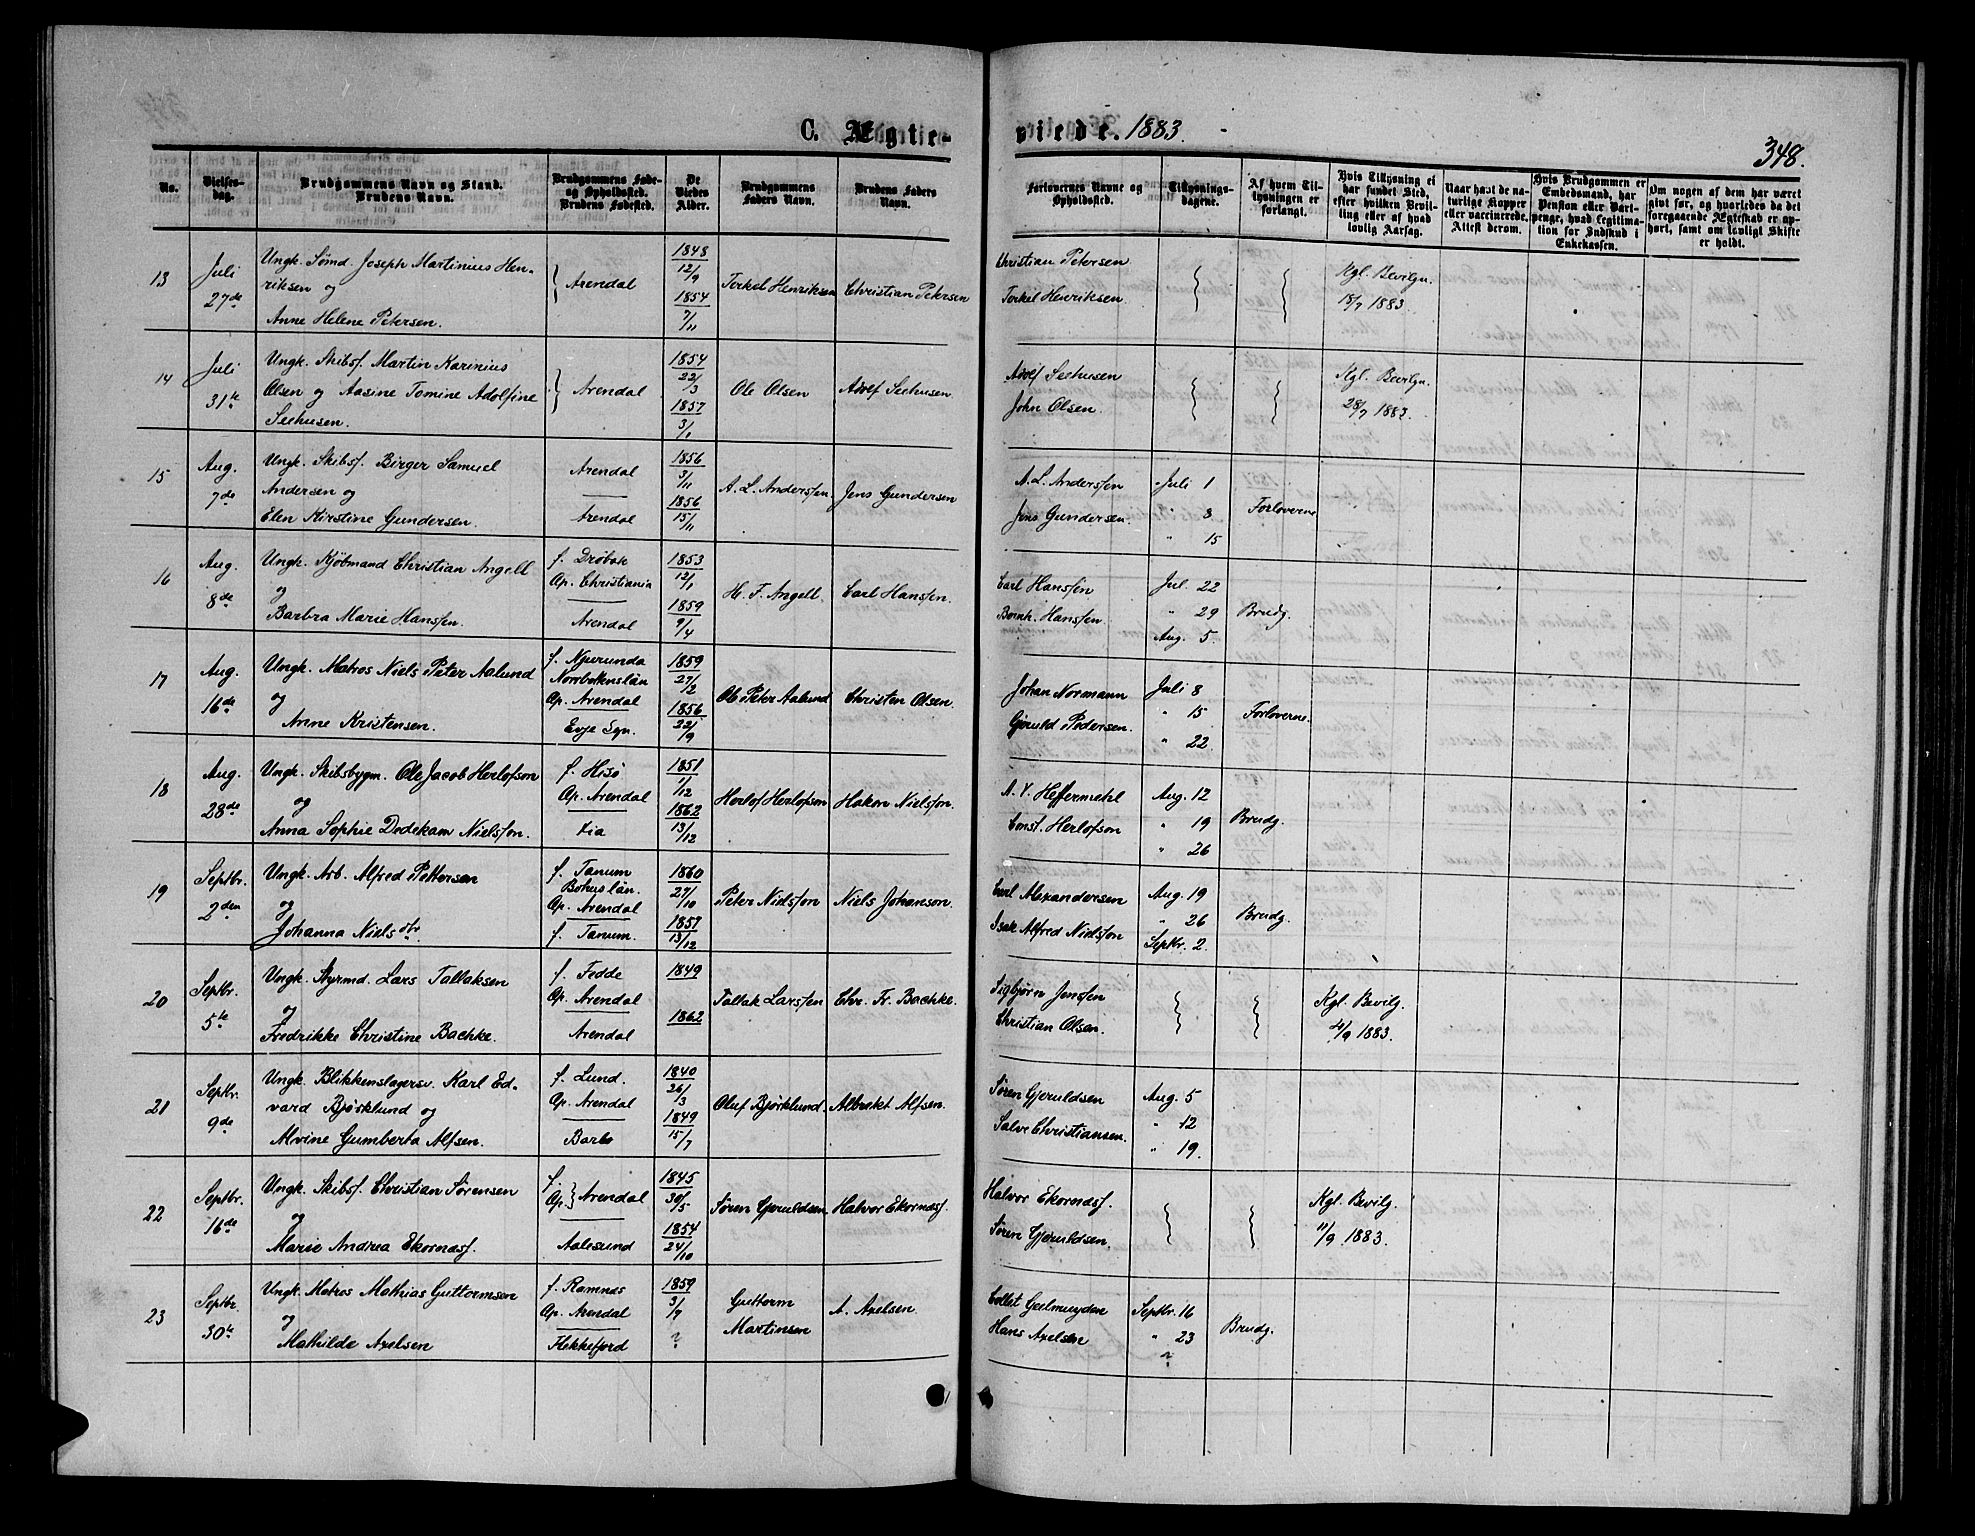 C. Ægte-
viede. 1883.
348.
No.
Vielses-
dag.
Brudgommens Navn og Stand.
Brudens Navn.
Brudgommens Føde-
og Opholdssted.
Brudens Fødested.
De
Viedes
Alder.
Brudgommens
Faders Navn.
Brudens Faders
Navn.
Forlovernes Navne og
Opholdssted.
Tillysnings-
dagene.
Af hvem Til-
lysningen er
forlangt.
Hvis Tillysning ei
har fundet Sted,
efter hvilken Bevil-
ling eller af hvad
lovlig Aarsag.
Naar havt de na-
turlige Kopper
eller vaccinerede.
Attest derom.
Hvis Brudgommen er
Embedsmand, har
Pension eller Vart-
penge, hvad Legitima-
tion for Indskud i
Enkekassen.
Om nogen af dem har været
gift før, og hvorledes da det
foregaaende Ægteskab er op-
hørt, samt om lovligt Skifte
er holdt.
13
Juli
27de
Ungk. Sømd. Joseph Martinius Hen-
riksen og
Anne Helene Petersen.
Arendal
1848
12/9
1854
7/11
Terkel Henriksen
Christian Petersen
Christian Petersen
Terkel Henriksen
Kgl. Bevilgn.
18/7 1883.
14
Juli
31te
Ungk. Skibsf. Martin Karinius
Olsen og Aasine Tomine Adolfine
Seehusen.
Arendal
1854
22/3
1857
3/1
Ole Olsen
Adolf Seehusen.
Adolf Seehusen
John Olsen.
Kgl. Bevilgn.
28/7 1883.
15
Aug.
7de
Ungk. Skibsf. Birger Samuel
Andersen og
Elen Kirstine Gundersen.
Arendal
Arendal
1856
3/11
1856
15/11
A. L. Anderssen.
Jens Gundersen
A. L. Anderssen
Jens Gundersen.
Juli 1
" 8
" 15
Forloverne
16
Aug.
8de
Ungk. Kjøbmand Christian Angell
og
Barbra Marie Hanssen.
f. Drøbak
Op. Christiania
Arendal
1853
12/1
1859
9/4
H. F. Angell.
Carl Hanssen.
Carl Hanssen
Bernh. Hanssen.
Jul. 22
" 29
Aug. 5.
Brudg.
17
Aug.
16de
Ungk. Matros Niels Peter Aalund
og
Anne Kristensen.
f. Njurunda
Norrbotenslän
Op. Arendal
Evje Sgn.
1859
27/2
1856
22/9
Ole Peter Aalund
Christen Olsen.
Johan Normann
Gjeruld Pedersen.
Juli 8
" 15
" 22.
Forloverne.
18
Aug.
28de
Ungk. Skibsbygm. Ole Jacob Herlofson
og
Anna Sophie Dedekam Nielsson.
f. Hisø
Op. Arendal
1851
1/12
1862
13/12
Herlof Herlofson
Hakon Nielsson.
A. V. Heffermehl
Const. Herlofson
Aug. 12
" 19
" 26
Brudg.
19
Septbr.
2den
Ungk. Arb. Alfred Pettersen
og
Johanna Nielsdtr.
f. Tanum
Bohuslän.
Op. Arendal
f. Tanum.
1860
27/10
1857
13/12
Peter Nielsson
Niels Johanson.
Carl Alexandersen
Isak Alfred Nielsson
Aug. 19
" 26
Septbr. 2.
Brudg.
20
Septbr.
5te
Ungk. Styrmd. Lars Tallaksen
og
Fredrikke Christine Bachke.
f. Fedde
Op. Arendal
Arendal
1849
1862
Tallak Larssen
Chr. Fr. Bachke.
Sigbjørn Jenssen
Christian Olsen.
Kgl. Bevilg.
4/9 1883.
21
Septbr.
9de
Ungk. Blikkenslagersv. Karl Ed-
vard Bjørklund og
Alvine Gumberta Alfsen.
f. Lund.
Op. Arendal
Barbo
1840
26/3
1849
15/7
Oluf Bjørklund.
Albrekt Alfsen.
Søren Gjeruldsen
Salve Christiansen.
Aug. 5
" 12
" 19.
22
Septbr.
16de
Ungk. Skibsf. Christian Sørensen
og
Marie Andrea Ekornæsf.
f.
Op.
Arendal
Aalesund
1845
30/5
1854
24/10
Søren Gjeruldsen
Halvor Ekornæsf.
Halvor Ekornæsf.
Søren Gjeruldsen.
Kgl. Bevilg.
11/9 1883.
23
Septbr.
30te
Ungk. Matros Mathias Guttormsen
og
Mathilde Axelsen
f. Ramnæs
Op. Arendal
Flekkefjord
1859
3/7
?
Guttorm
Martinsen
A. Axelsen.
Collet Geelmuyden
Hans Axelsen
Septbr. 16
" 23
?
Brudg.